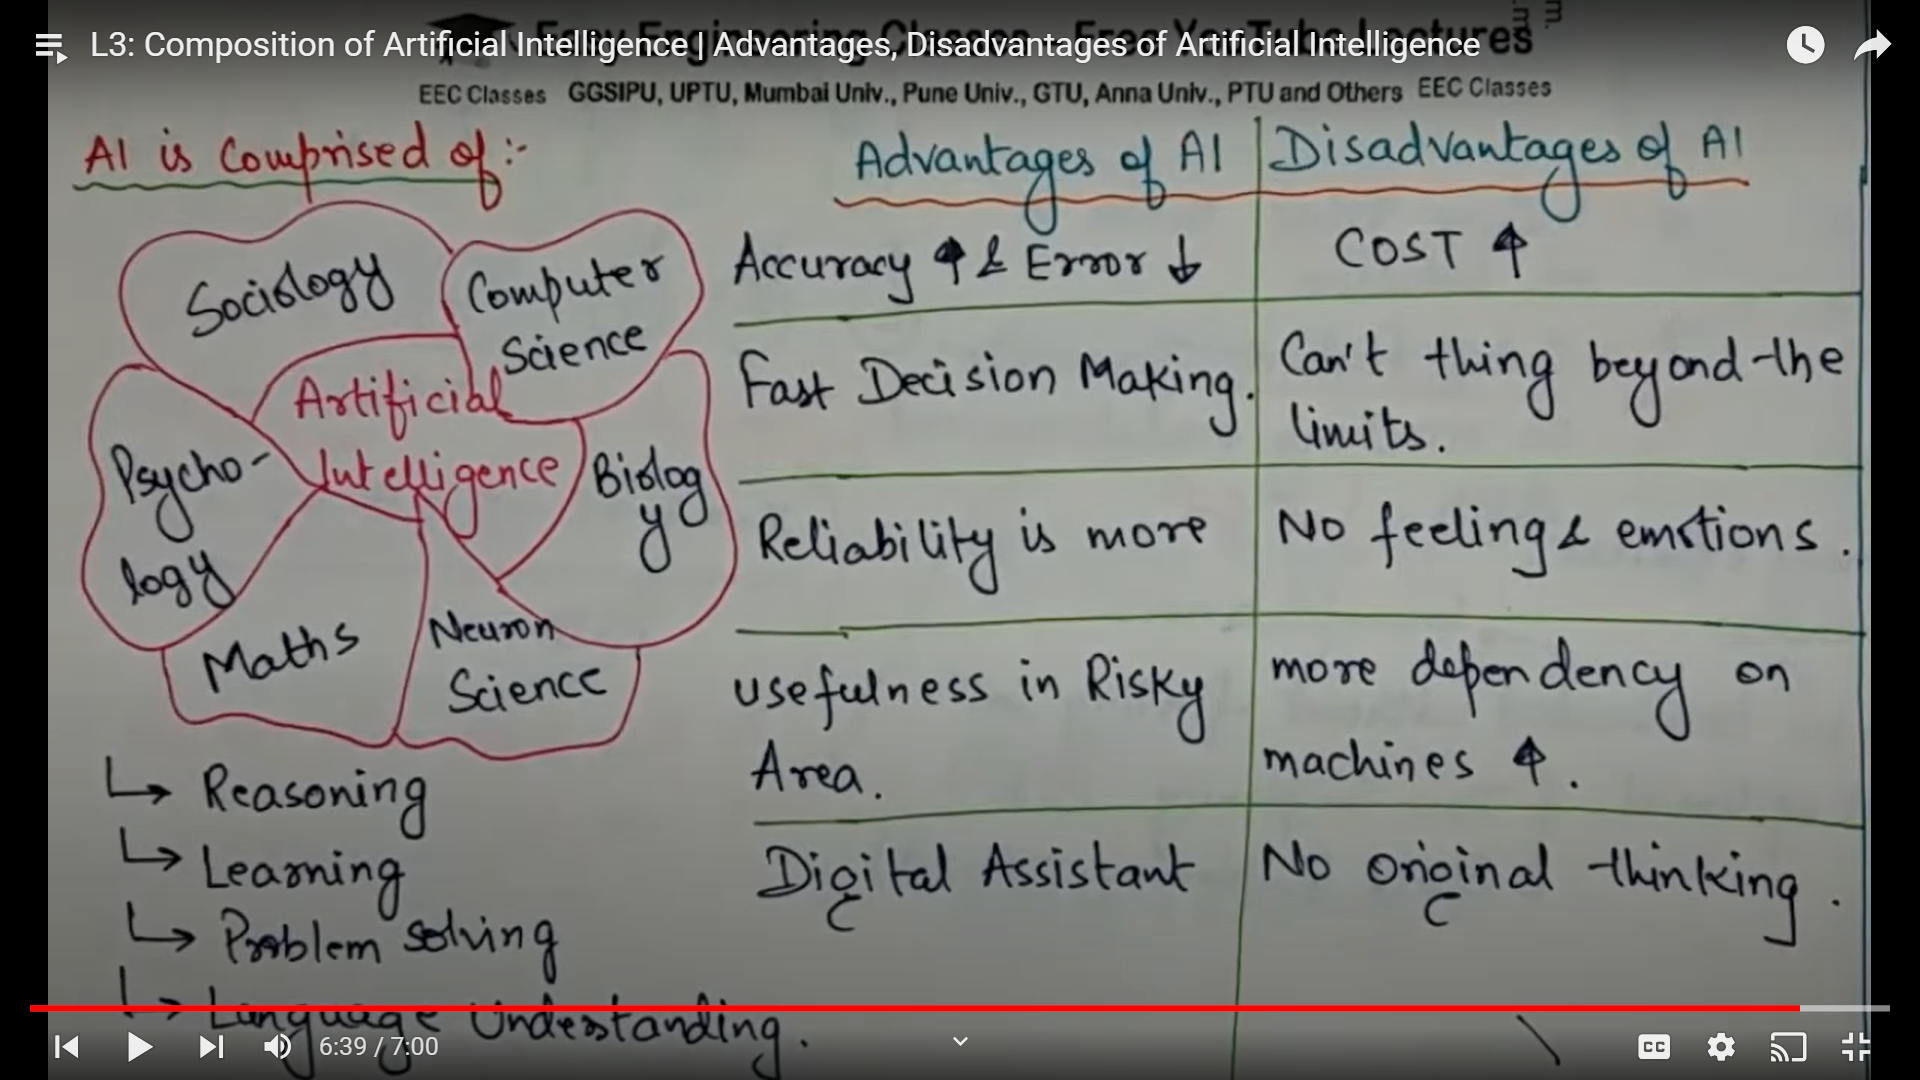 L3: Composition of Artificial Intelligence | Advantages, Disadvantages of Artificial Intelligence
Easy Engineering Classes - Free YouTube Lectures
EEC Classes GGSIPU, UPTU, Mumbai Univ., Pune Univ., GTU, Anna Univ., PTU and Others EEC Classes
AI is Comprised of :-
Sociology
Computer
Science
Artificial
Intelligence
Psycho-
logy
Biolog
y
Maths
Neuron
Science
↳ Reasoning
↳ Learning
↳ Problem solving
↳ Language Understanding.
Advantages of AI | Disadvantages of AI
Accuracy ↑ & Error ↓
COST ↑
Fast Decision Making.
Can't thing beyond the
limits.
Reliability is more
No feeling & emotions.
usefulness in Risky
Area.
more dependency on
machines ↑.
Digital Assistant
No original thinking.
6:39 / 7:00
CC